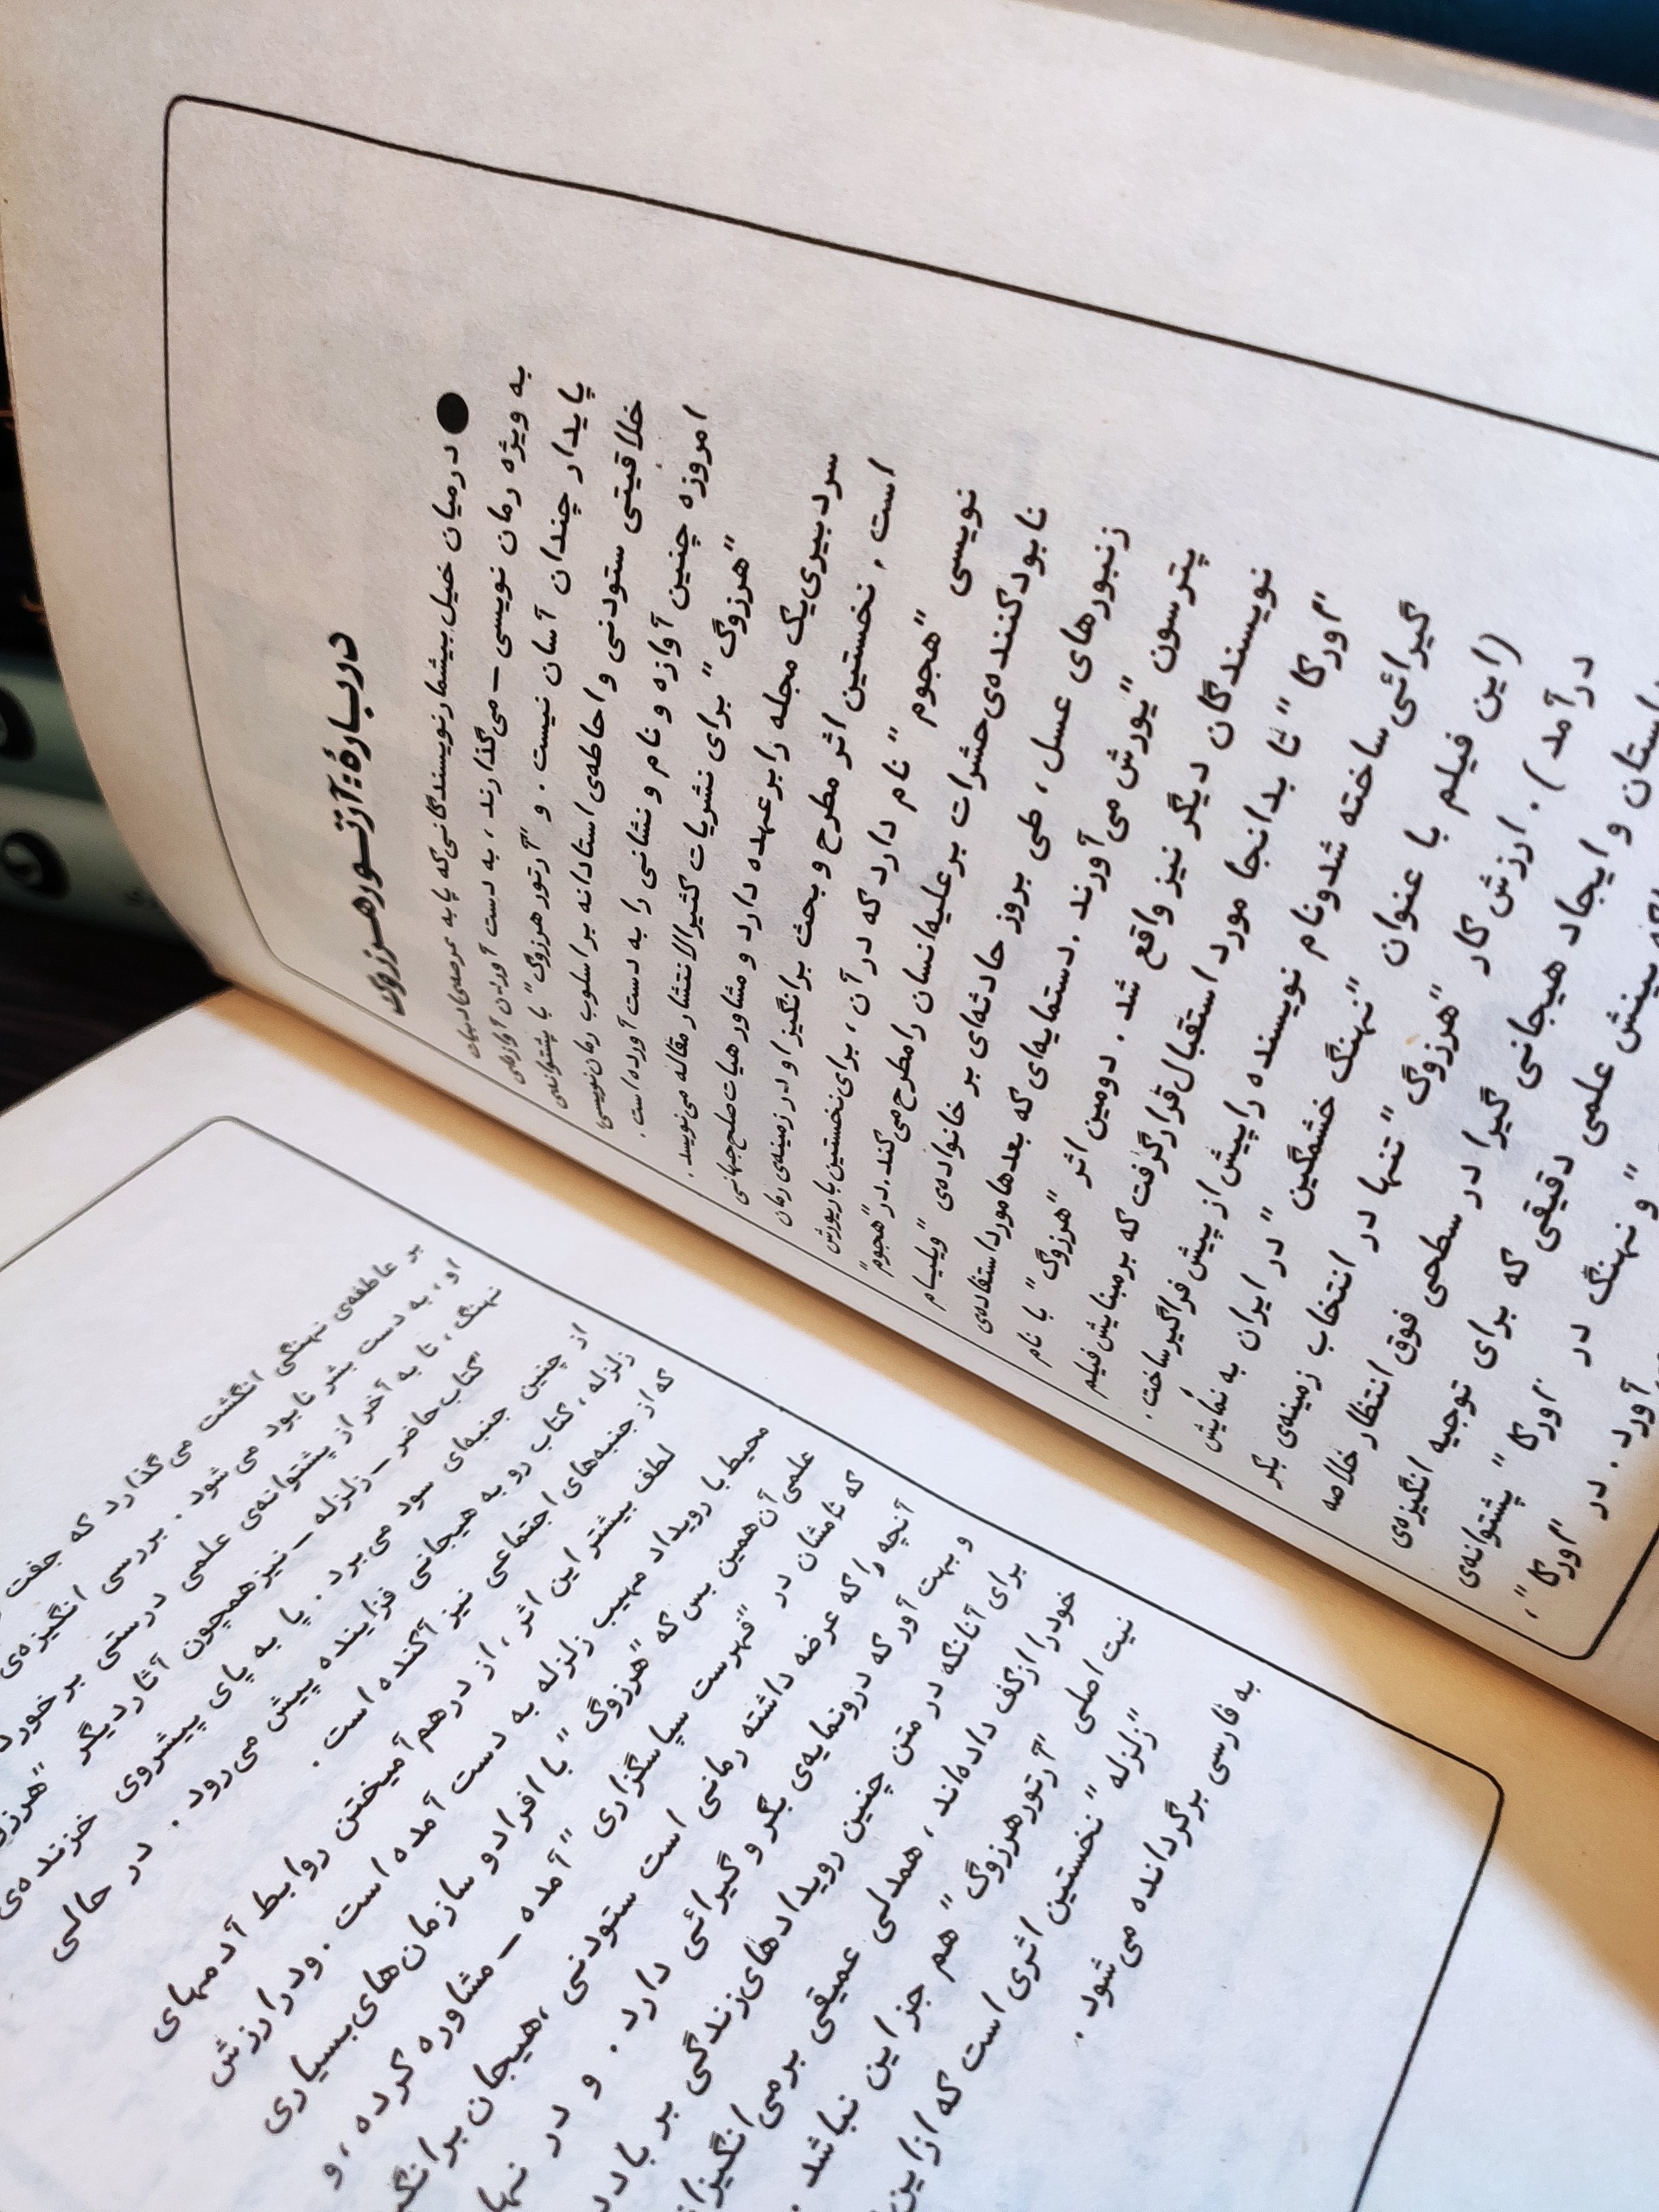 دربارهٔ: آرتور هرزوگ
● در میان خیل بیشمار نویسندگانی که پا به عرصه‌ی ادبیات
به ویژه رمان نویسی — می‌گذارند، به دست آوردن آوازه‌ی
پایدار چندان آسان نیست. و "آرتور هرزوگ" با پشتوانه‌ی
خلاقیتی ستودنی و احاطه‌ی استادانه بر اسلوب رمان‌نویسی
امروزه چنین آوازه و نام و نشانی را به دست آورده است.
"هرزوگ" برای نشریات کثیرالانتشار مقاله می‌نویسد.
سردبیری یک مجله را بر عهده دارد و مشاور هیات صلح جهانی
است. نخستین اثر مطرح و بحث برانگیز او در زمینه‌ی رمان
نویسی "هجوم" نام دارد که در آن، برای نخستین بار یورش
نابودکننده‌ی حشرات بر علیه انسان را مطرح می‌کند. در "هجوم"
زنبورهای عسل، طی بروز حادثه‌ای بر خانواده‌ی "ویلیام
پترسون" یورش می‌آورند. دستمایه‌ای که بعدها مورد استفاده‌ی
نویسندگان دیگر نیز واقع شد. دومین اثر "هرزوگ" با نام
"اورکا" تا بدانجا مورد استقبال قرار گرفت که بر مبنایش فیلم
گیرائی ساخته شد و نام نویسنده را پیش از پیش فراگیر ساخت.
(این فیلم با عنوان "نهنگ خشمگین" در ایران به نمایش
درآمد). ارزش کار "هرزوگ" تنها در انتخاب زمینه‌ی بکر
داستان و ایجاد هیجانی گیرا در سطحی فوق انتظار خلاصه
بینش علمی دقیقی که برای توجیه انگیزه‌ی
و نهنگ در "اورکا" پشتوانه‌ی
آورد. در "اورکا"،
بر عاطفه‌ی نهنگی انگشت می‌گذارد که جفت
او، به دست بشر نابود می‌شود. بررسی انگیزه‌ی
نهنگ، تا به آخر از پشتوانه‌ی علمی درستی
"کتاب حاضر — زلزله — نیز همچون آثار دیگر
از چنین جنبه‌ای سود می‌برد. پا به پای پیشروی خزنده‌ی
زلزله، کتاب رو به هیجانی فزاینده پیش می‌رود. در حالی
که از جنبه‌های اجتماعی نیز آکنده است.
لطف بیشتر این اثر، از درهم آمیختن روابط آدمهای
محیط با رویداد مهیب زلزله به دست آمده است. و در ارزش
علمی آن همین بس که "هرزوگ" با افراد و سازمان‌های بسیاری
که نامشان در "فهرست سپاسگزاری" آمده — مشاوره کرده، و
آنچه را که عرضه داشته رمانی است ستودنی، هیجان
و بهت آور که درونمایه‌ی بکر و گیرائی دارد. و در
برای آنانکه در متن چنین رویدادهای زندگی بر
خود را از کف داده‌اند، همدلی عمیقی بر می‌انگیزاند
نیت اصلی "آرتور هرزوگ" هم جز این نباشد.
"زلزله" نخستین اثری است که از این
به فارسی برگردانده می‌شود.